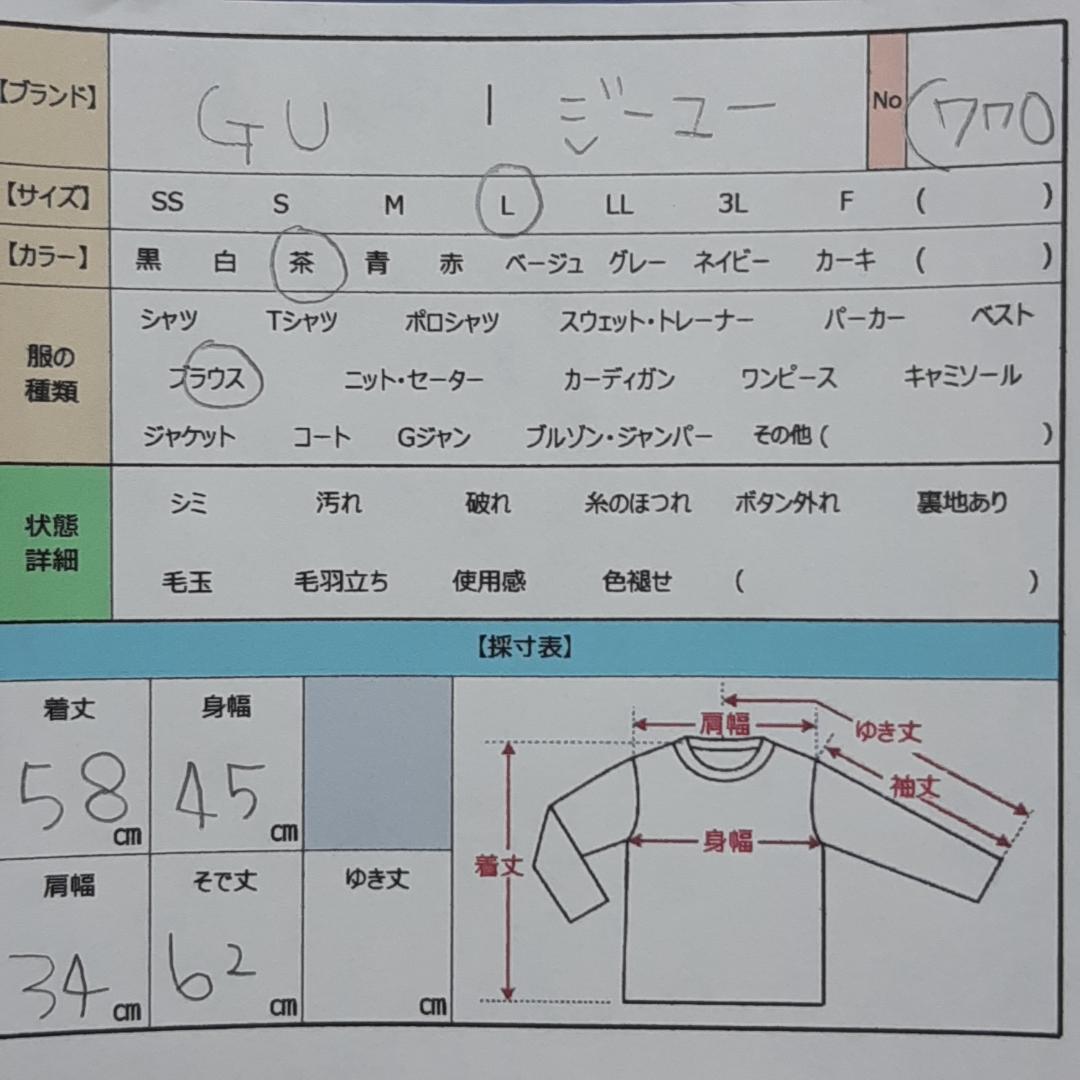 【ブランド】 GU | ジーユー No (770
【サイズ】 SS S M L LL 3L F ( )
【カラー】 黒 白 茶 青 赤 ベージュ グレー ネイビー カーキ ( )
服の種類
シャツ Tシャツ ポロシャツ スウェット・トレーナー パーカー ベスト
ブラウス ニット・セーター カーディガン ワンピース キャミソール
ジャケット コート Gジャン ブルゾン・ジャンパー その他 ( )
状態詳細
シミ 汚れ 破れ 糸のほつれ ボタン外れ 裏地あり
毛玉 毛羽立ち 使用感 色褪せ ( )
【採寸表】
着丈 身幅
58cm 45cm
肩幅 そで丈 ゆき丈
34cm 62cm cm
肩幅 ゆき丈
袖丈
身幅
着丈